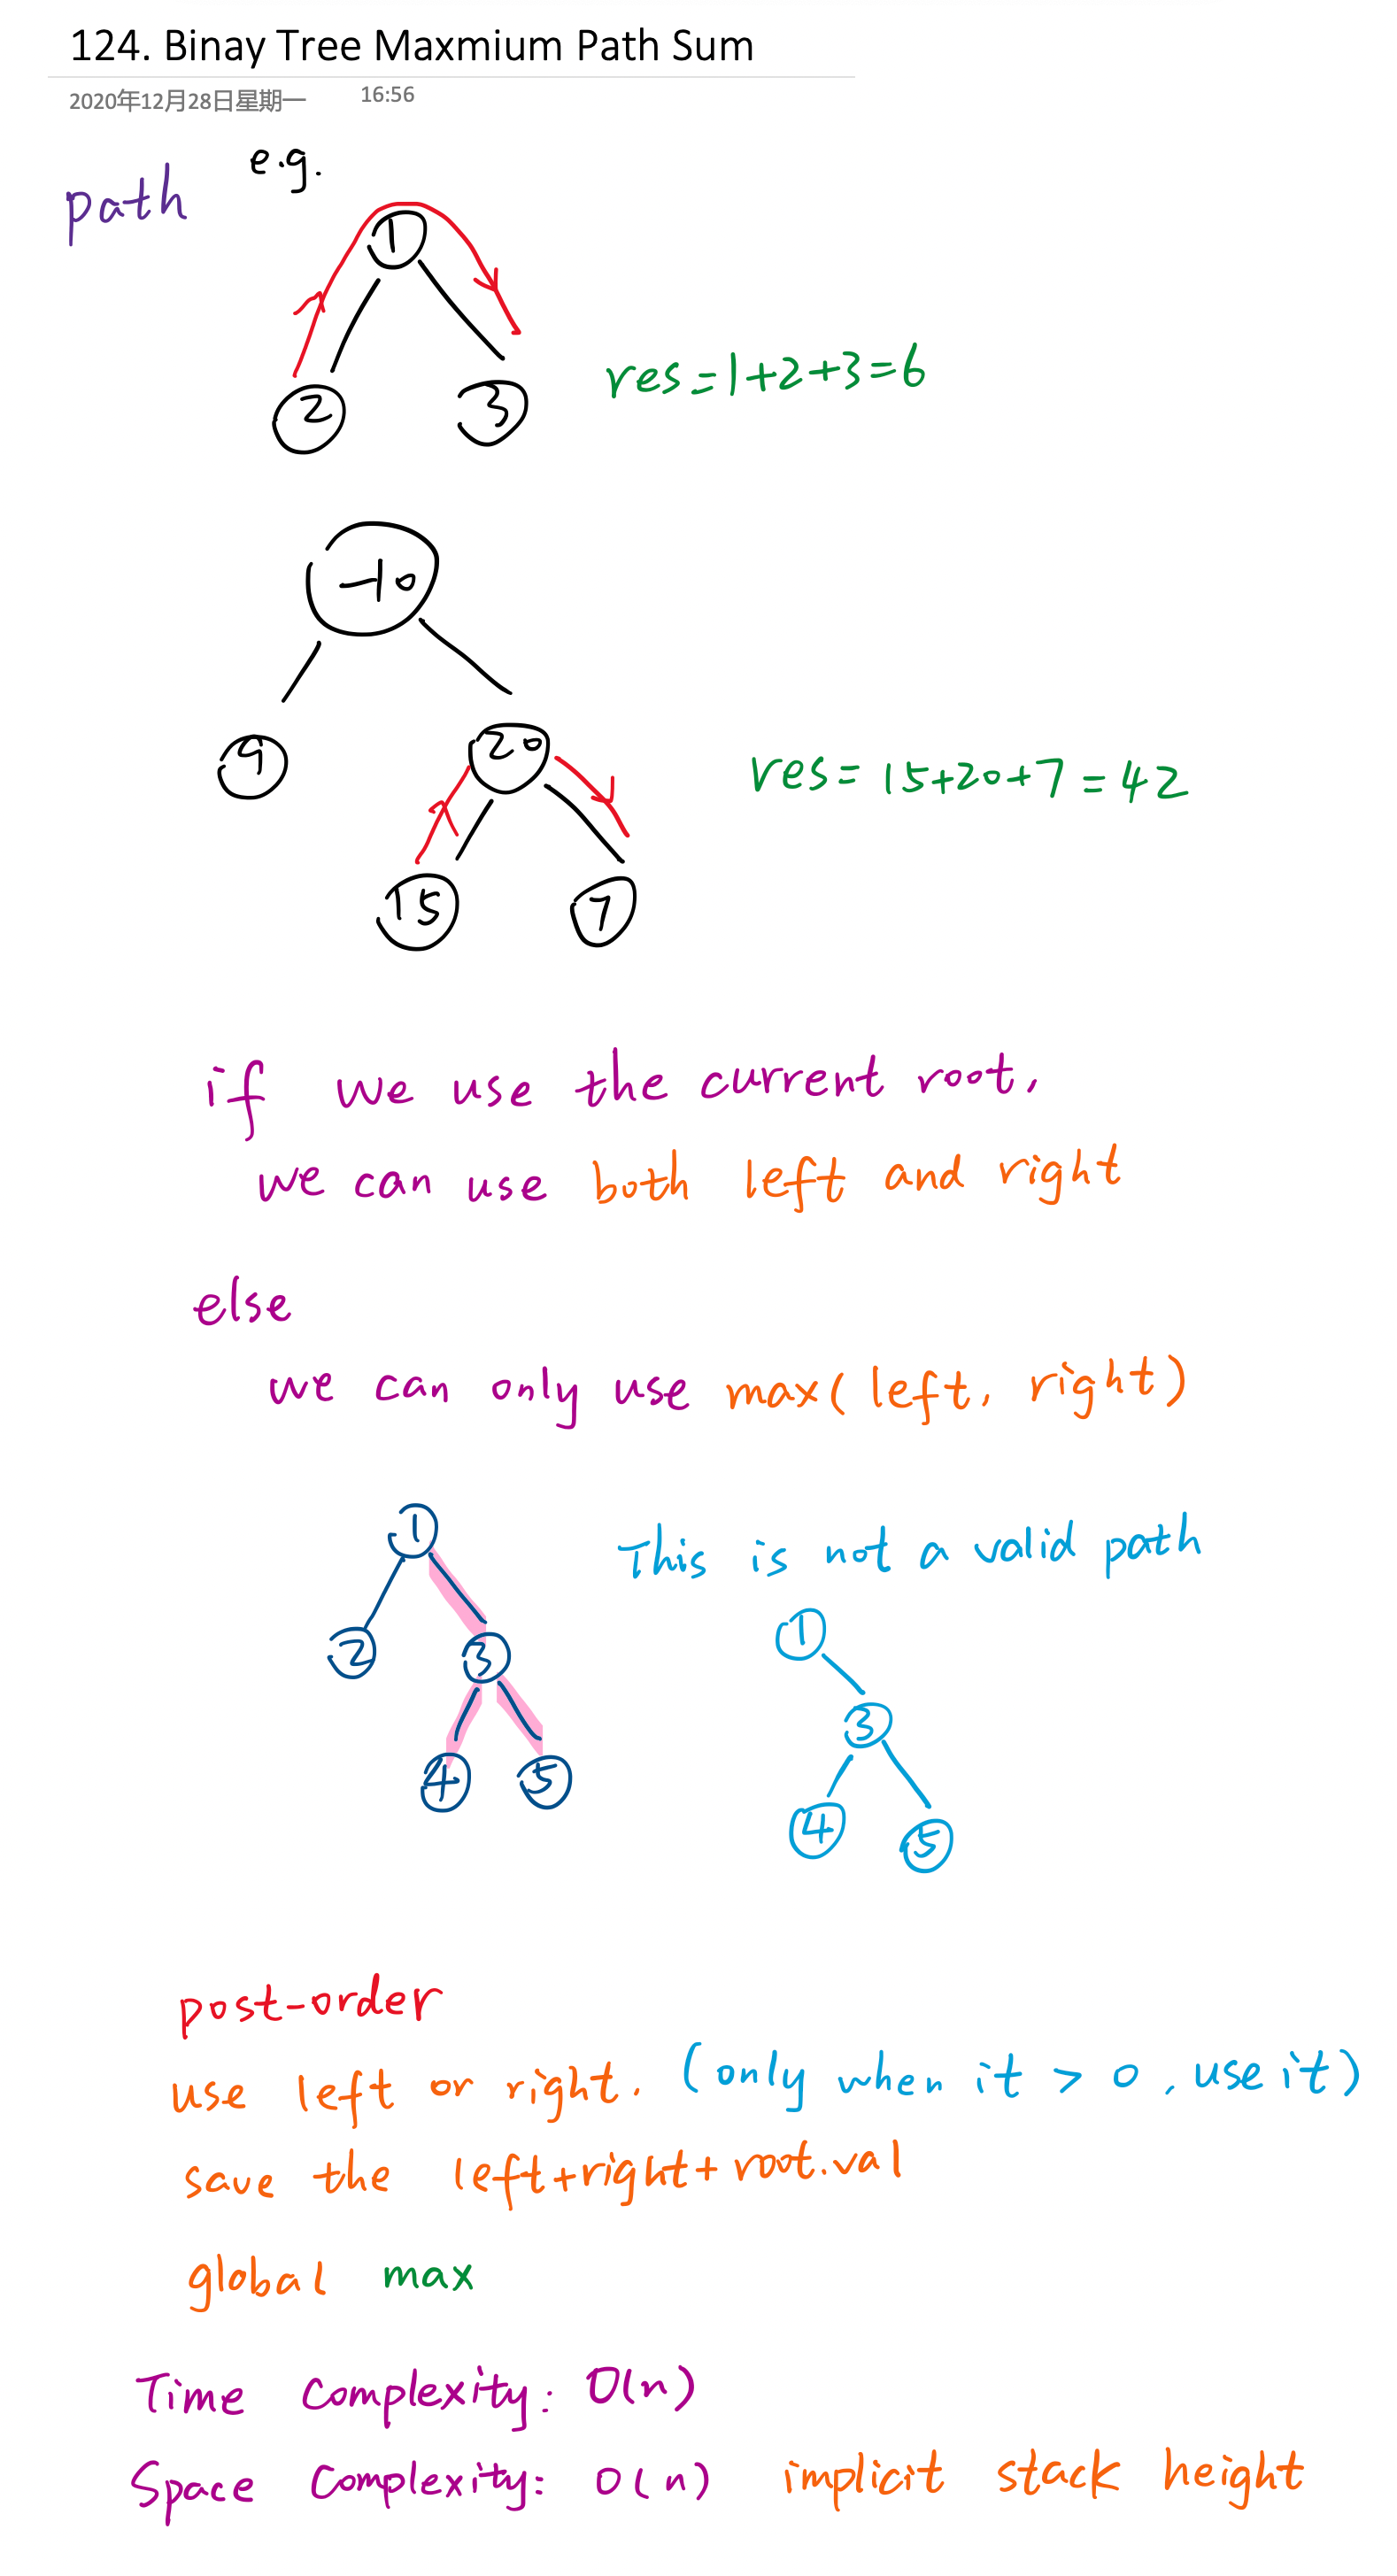 124. Binay Tree Maxmium Path Sum
2020年12月28日星期一 16:56
path e.g.
1
2 3
res=1+2+3=6
-10
9 20
res= 15+20+7=42
15 7
if we use the current root,
we can use both left and right
else
we can only use max(left, right)
1
This is not a valid path
2 3
4 5
1
3
4 5
post-order
use left or right. (only when it > 0, use it)
save the left+right+root.val
global max
Time Complexity: O(n)
Space Complexity: O(n) implicit stack height